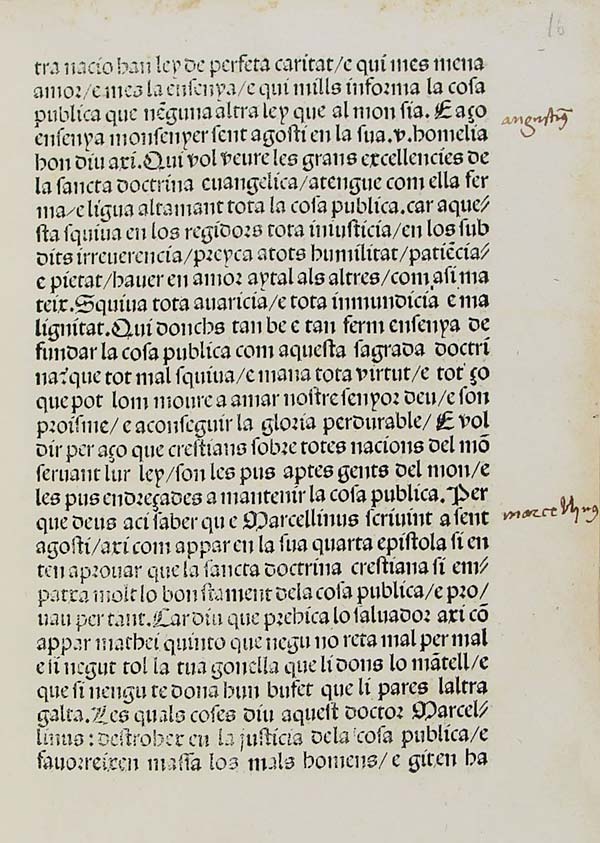 16
tra nacio han ley de perfeta caritat/e qui mes mena
amor/e mes la ensenya/e qui mills informa la cosa
publica que nēguna altra ley que al mon sia. E aço
ensenya monsenyer sent agosti en la sua .v. homelia
hon diu axi. Qui vol veure les grans excellencies de
la sancta doctrina euangelica/atengue com ella fer
ma/e ligua altamant tota la cosa publica. car aque⸗
sta squiua en los regidors tota iniusticia/en los sub
dits irreuerencia/preyca atots humilitat/patiēcia/
e pietat/hauer en amor aytal als altres/com asi ma
teix. Squiua tota auaricia/e tota inmundicia e ma
lignitat. Qui donchs tan be e tan ferm ensenya de
fundar la cosa publica com aquesta sagrada doctri
na? que tot mal squiua/e mana tota virtut/e tot ço
que pot lom moure a amar nostre senyor deu/e son
proisme/e aconseguir la gloria perdurable/ E vol
dir per aço que crestians sobre totes nacions del mō
seruant lur ley/son les pus aptes gents del mon/e
les pus endreçades a mantenir la cosa publica. Per
que deus aci saber qu e Marcellinus scriuint a sent
agosti/axi com appar en la sua quarta epistola si en
ten aprouar que la sancta doctrina crestiana si em⸗
patxa molt lo bon stament dela cosa publica/e pro/
uau per tant. Car diu que prehica lo saluador axi cō
appar mathei quinto que negu no reta mal per mal
e si negut tol la tua gonella que li dons lo mātell/e
que si nengu te dona hun bufet que li pares laltra
galta. Les quals coses diu aquest doctor Marcel⸗
linus: destrohex en la justicia dela cosa publica/e
fauorreixen massa los mals homens/e giten ha
angustiꝰ
marcellinus